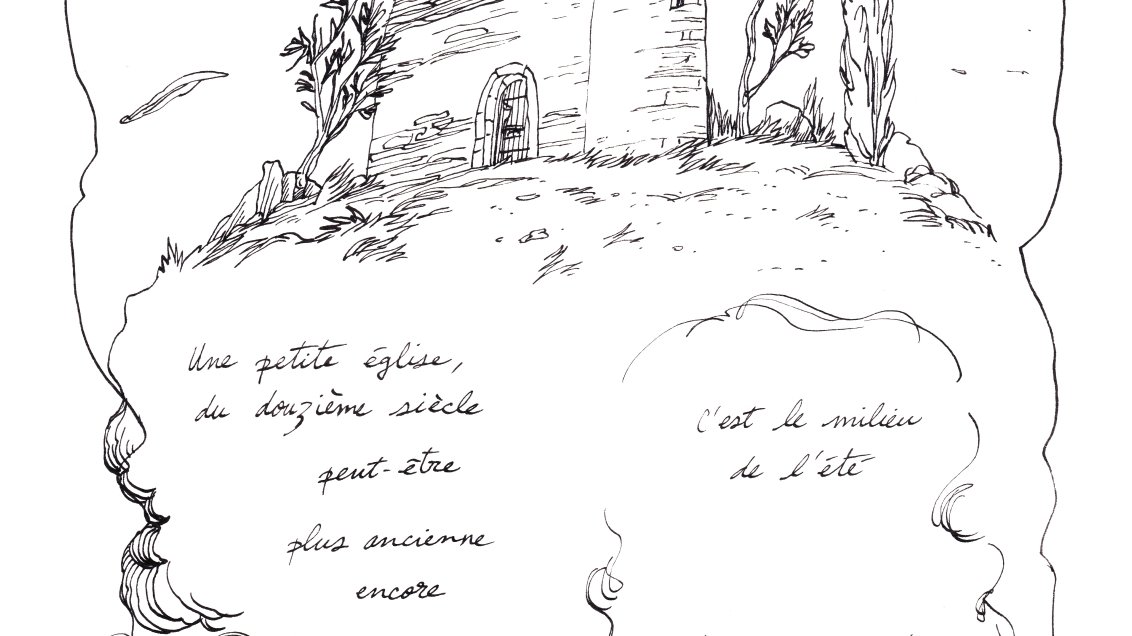 Une petite église,
du douzième siècle
peut-être
plus ancienne
encore
C'est le milieu
de l'été